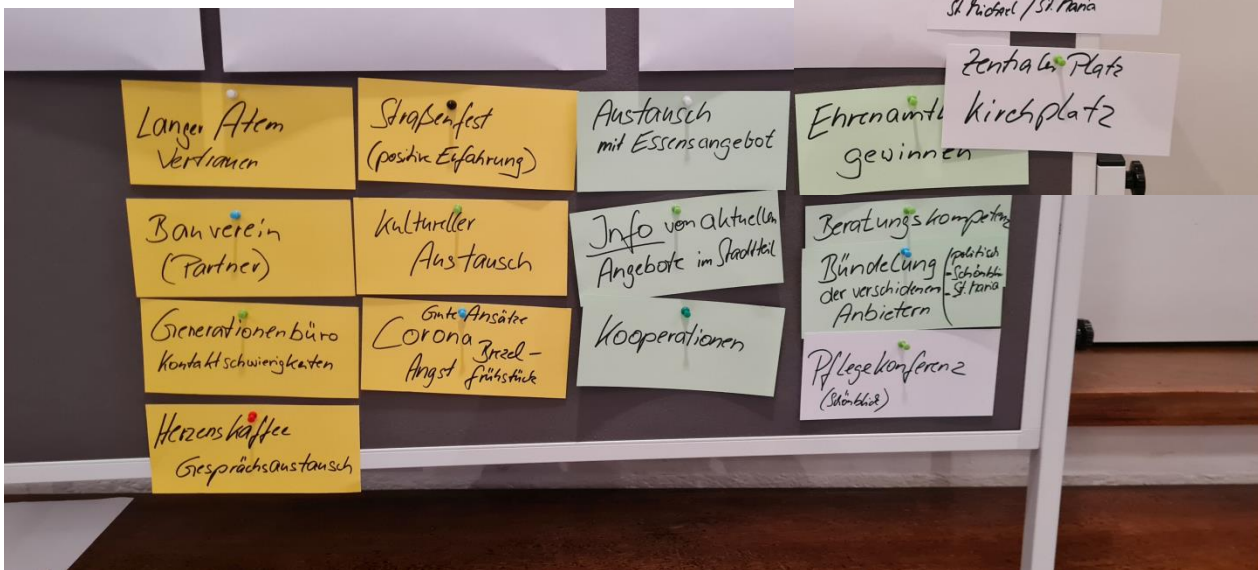 St. Michael / St. Maria
Zentraler Platz
Kirchplatz
Langer Atem
Vertrauen
Straßenfest
(positive Erfahrung)
Austausch
mit Essensangebot
Ehrenamtl
gewinnen
Bauverein
(Partner)
Kultureller
Austausch
Info von aktuellen
Angebote im Stadtteil
Beratungskompetenz
Bündelung
der verschidenen
Anbietern
(politisch
- Schönblick
- St. Maria
Generationenbüro
Kontaktschwierigkeiten
Gute Ansätze
Corona Brezel-
Angst frühstück
Kooperationen
Pflegekonferenz
(Schönblick)
Herzenskaffee
Gesprächsaustausch